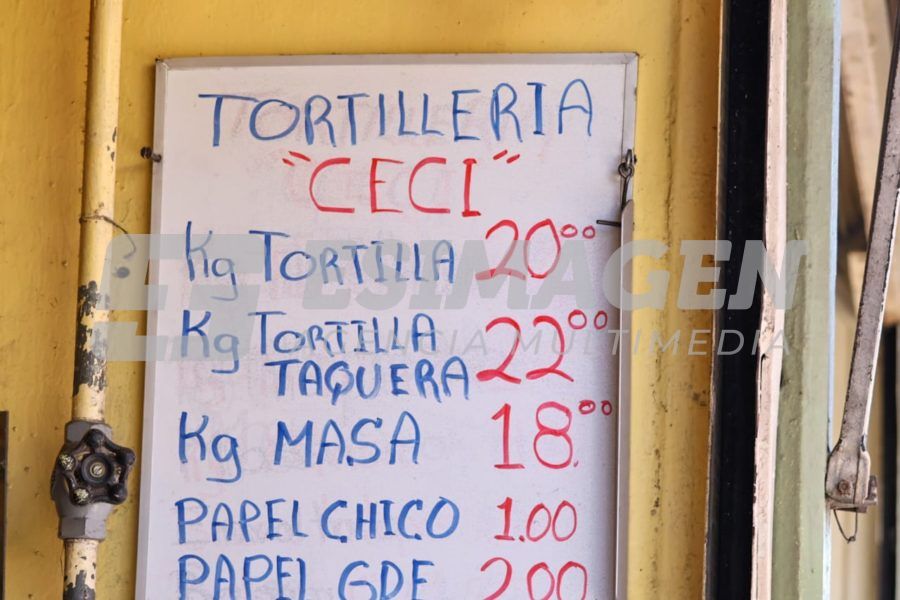 TORTILLERIA
"CECI"
Kg TORTILLA 20°°
Kg TORTILLA
TAQUERA 22°°
Kg MASA 18.°°
PAPEL CHICO 1.00
PAPEL GDE 2.00
ESIMAGEN
AGENCIA MULTIMEDIA